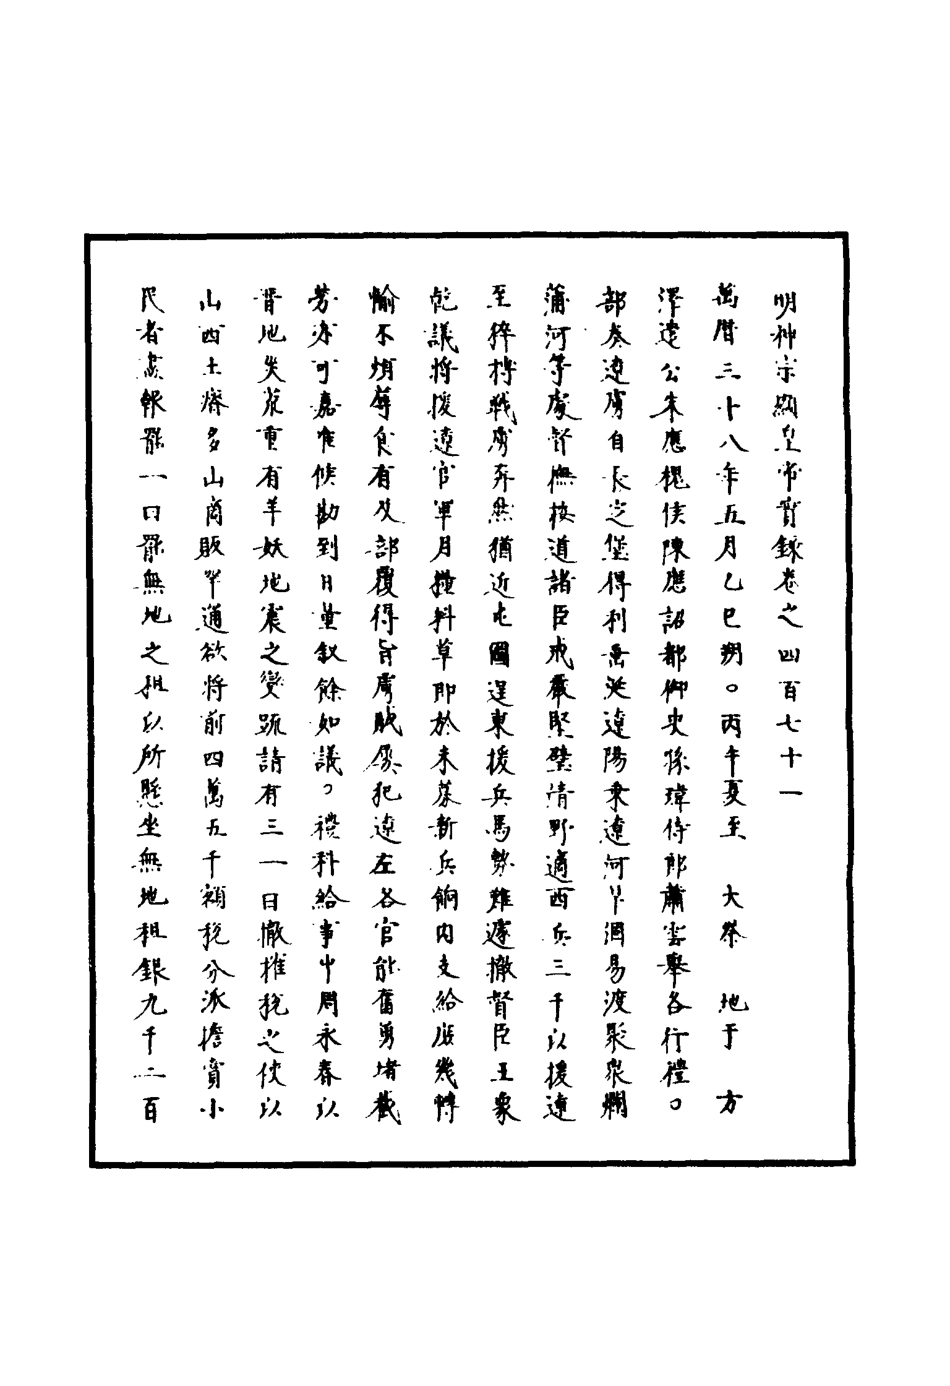 明神宗顯皇帝實錄卷之四百七十一
萬曆三十八年五月乙巳朔。丙午夏至 大祭 地于 方
澤遣公朱應槐侯陳應詔都御史孫瑋侍郎蕭雲舉各行禮。
部奏遼虜自長定堡得利垂涎遼陽東遼河旱涸易渡聚眾闌
蒲河等處督撫按道諸臣戒嚴堅壁清野適西兵三千以援遼
至猝搏戰虜奔然猶近屯圖逞東援兵馬勢難遽撤督臣王象
乾議將援遼官軍月糧料草即於未募新兵餉內支給庶幾轉
輸不煩蓐食有及部覆得旨虜賊屢犯遼左各官能奮勇堵截
勞亦可嘉唯候勘到日並敘餘如議。禮科給事中周永春以
晉地失荒重有羊妖地震之變疏請有三一曰撤榷稅之使以
山西土瘠多山商販罕通欲將前四萬五千額稅分派擔賣小
民者盡報罷一曰罷無地之租以所懸坐無地租銀九千二百